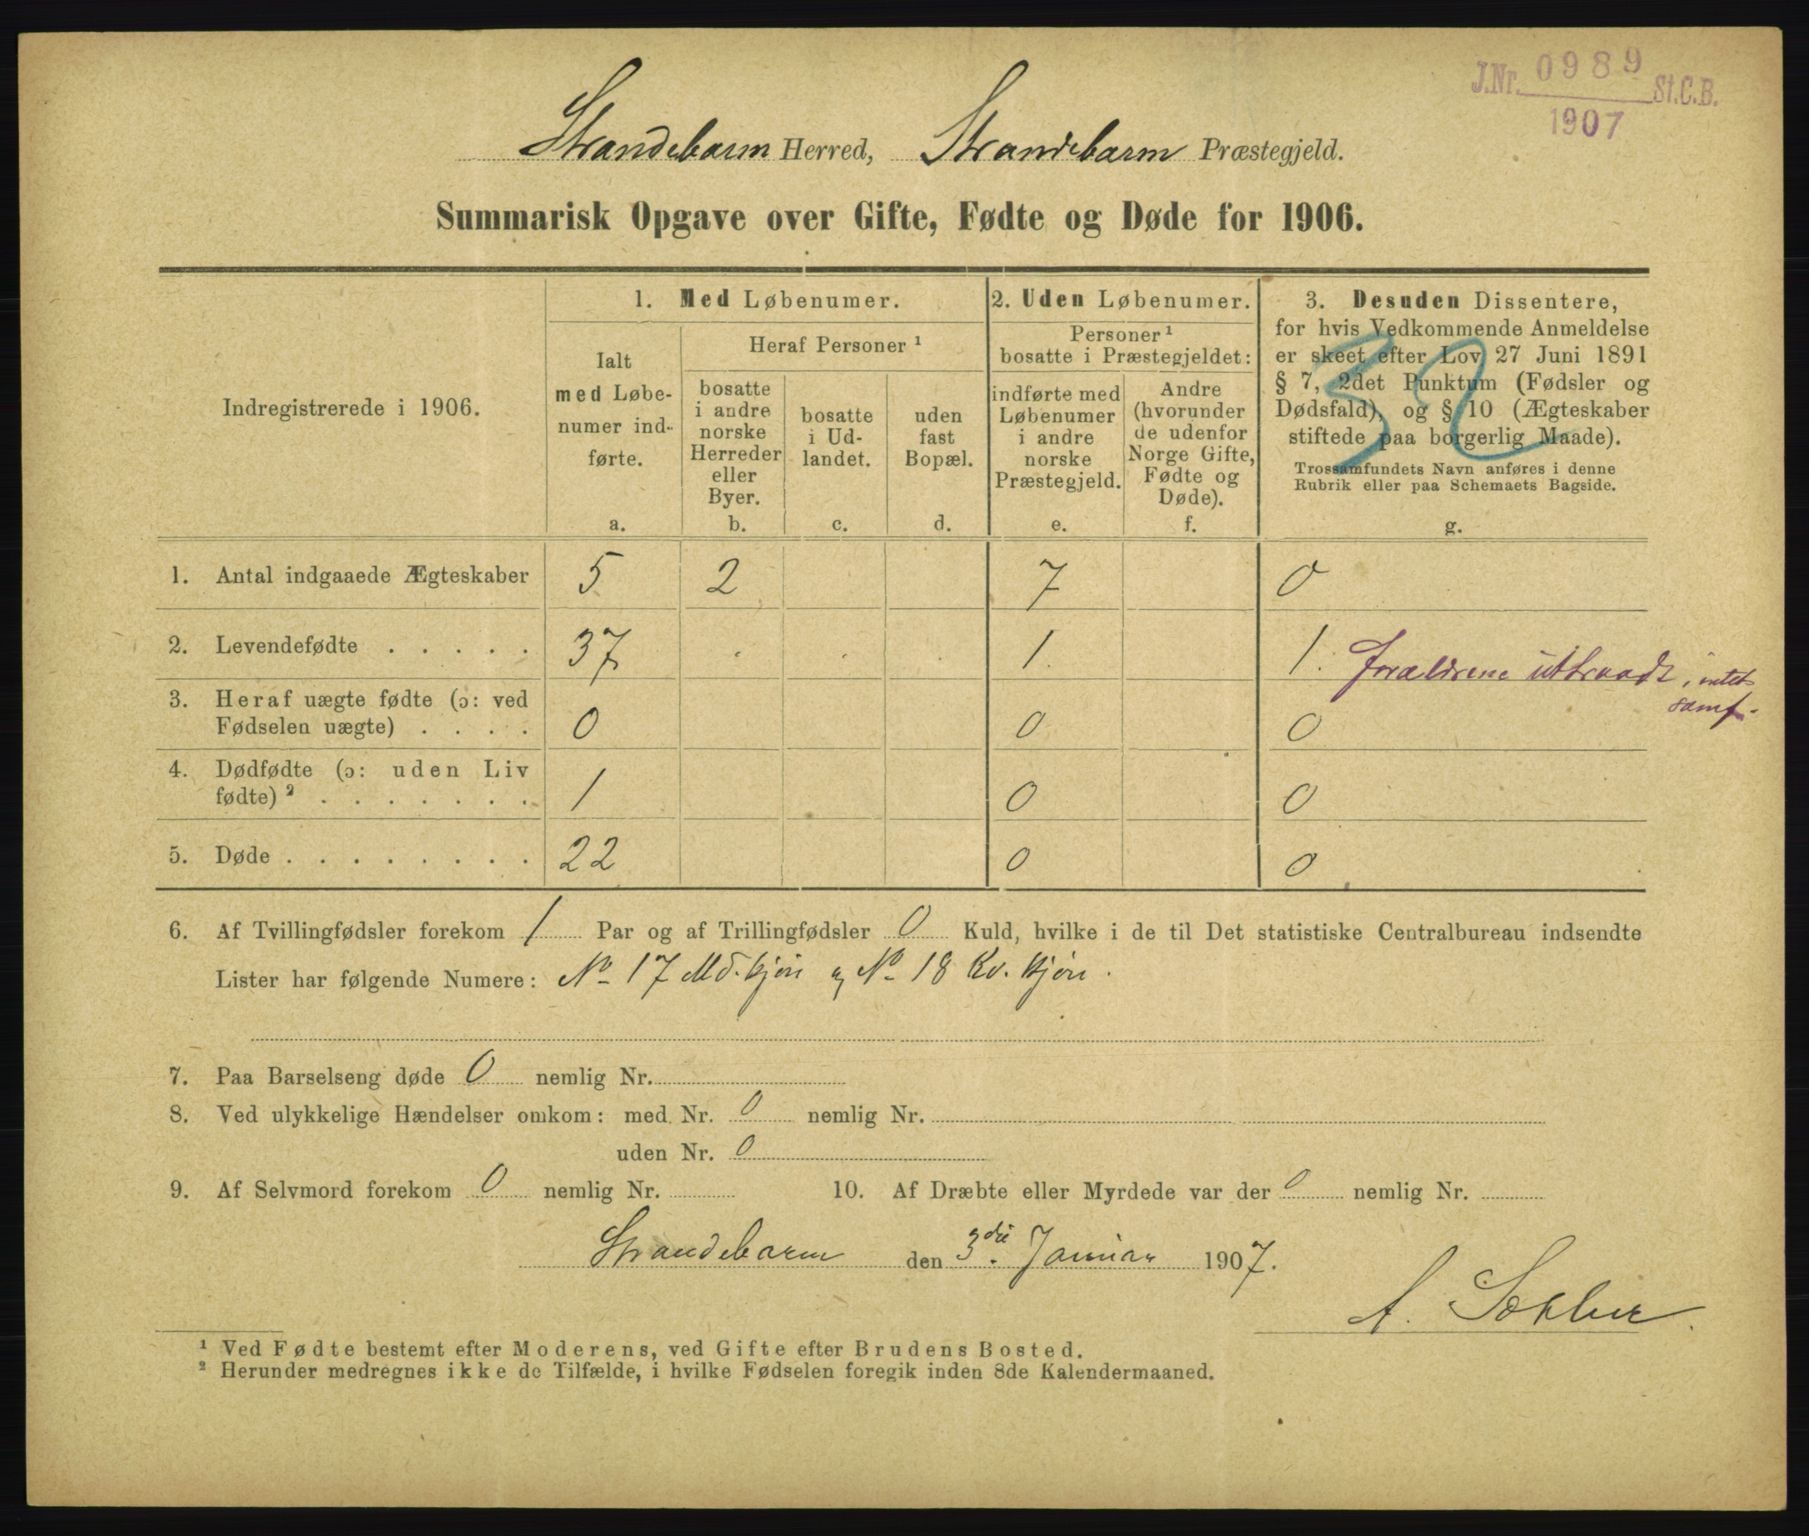 J.Nr. 0989 St.C.B.
1907
Strandebarm Herred, Strandebarm Præstegjeld.
Summarisk Opgave over Gifte, Fødte og Døde for 1906.
Indregistrerede i 1906.
1. Med Løbenumer.
Ialt
med Løbe-
numer ind-
førte.
a.
Heraf Personer ¹
bosatte
i andre
norske
Herreder
eller
Byer.
b.
bosatte
i Ud-
landet.
c.
uden
fast
Bopæl.
d.
2. Uden Løbenumer.
Personer ¹
bosatte i Præstegjeldet:
indførte med
Løbenumer
i andre
norske
Præstegjeld.
e.
Andre
(hvorunder
de udenfor
Norge Gifte,
Fødte og
Døde).
f.
3. Desuden Dissentere,
for hvis Vedkommende Anmeldelse
er skeet efter Lov 27 Juni 1891
§ 7, 2det Punktum (Fødsler og
Dødsfald), og § 10 (Ægteskaber
stiftede paa borgerlig Maade).
Trossamfundets Navn anføres i denne
Rubrik eller paa Schemaets Bagside.
g.
32
1. Antal indgaaede Ægteskaber 5 2 7 0
2. Levendefødte . . . . . 37 . . . 1. 1. Forældrene udtraadt, intet
samf.
3. Heraf uægte fødte (ɔ: ved
Fødselen uægte) . . . . 0 0 0
4. Dødfødte (ɔ: uden Liv
fødte) ² . . . . . . . 1 0 0
5. Døde . . . . . . . . . 22 0 0
6. Af Tvillingfødsler forekom 1 Par og af Trillingfødsler 0 Kuld, hvilke i de til Det statistiske Centralbureau indsendte
Lister har følgende Numere: No 17 Md. kjøn og No 18 Kv. kjøn.
7. Paa Barselseng døde 0 nemlig Nr.
8. Ved ulykkelige Hændelser omkom: med Nr. 0 nemlig Nr.
uden Nr. 0
9. Af Selvmord forekom 0 nemlig Nr. 10. Af Dræbte eller Myrdede var der 0 nemlig Nr.
Strandebarm den 3die Januar 1907.
A.
¹ Ved Fødte bestemt efter Moderens, ved Gifte efter Brudens Bosted.
² Herunder medregnes ikke de Tilfælde, i hvilke Fødselen foregik inden 8de Kalendermaaned.